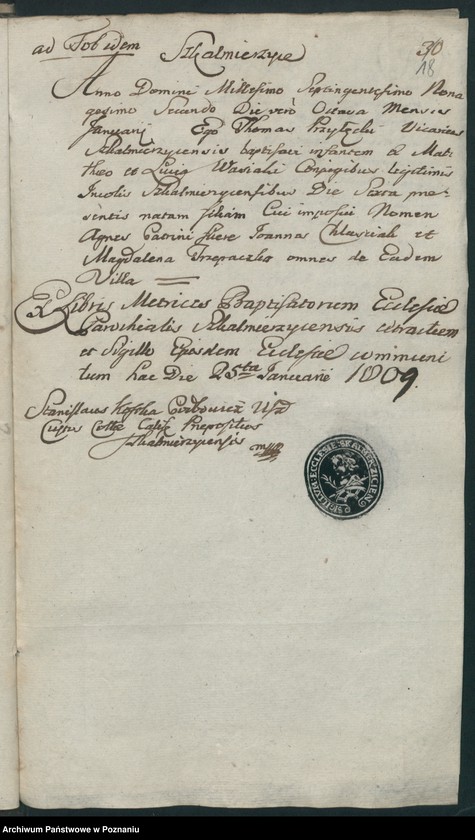 ad Tob idem Skalmierzyce
30
18
Anno Domini Millesimo Septingentesimo Nona
gesimo Secundo Die vero Octava Mensis
Januarij Ego Thomas Przyłęcki Vicarius
Skalmierzycensis baptisavi infantem a Mat
theo et Lucia Wasiaki Conjugibus legitimis
Incolis Skalmierzycensibus Die Sexta prae
sentis natam filiam Cui imposui Nomen
Agnes Patrini fuere Joannes Chlasciak et
Magdalena omnes de Eadem
Villa
Ex Libris Metrices Baptisatorum Ecclesiae
Parochialis Skalmierzycensis extractum
et Sigillo Ejusdem Ecclesiae communi
tum hac Die 25ta Januarii 1809.
Stanislaus Kostka
Praepositus
Skalmierzycensis mpp
SIGILLUM ECCLESIE SKALMIERZICEN
Archiwum Państwowe w Poznaniu